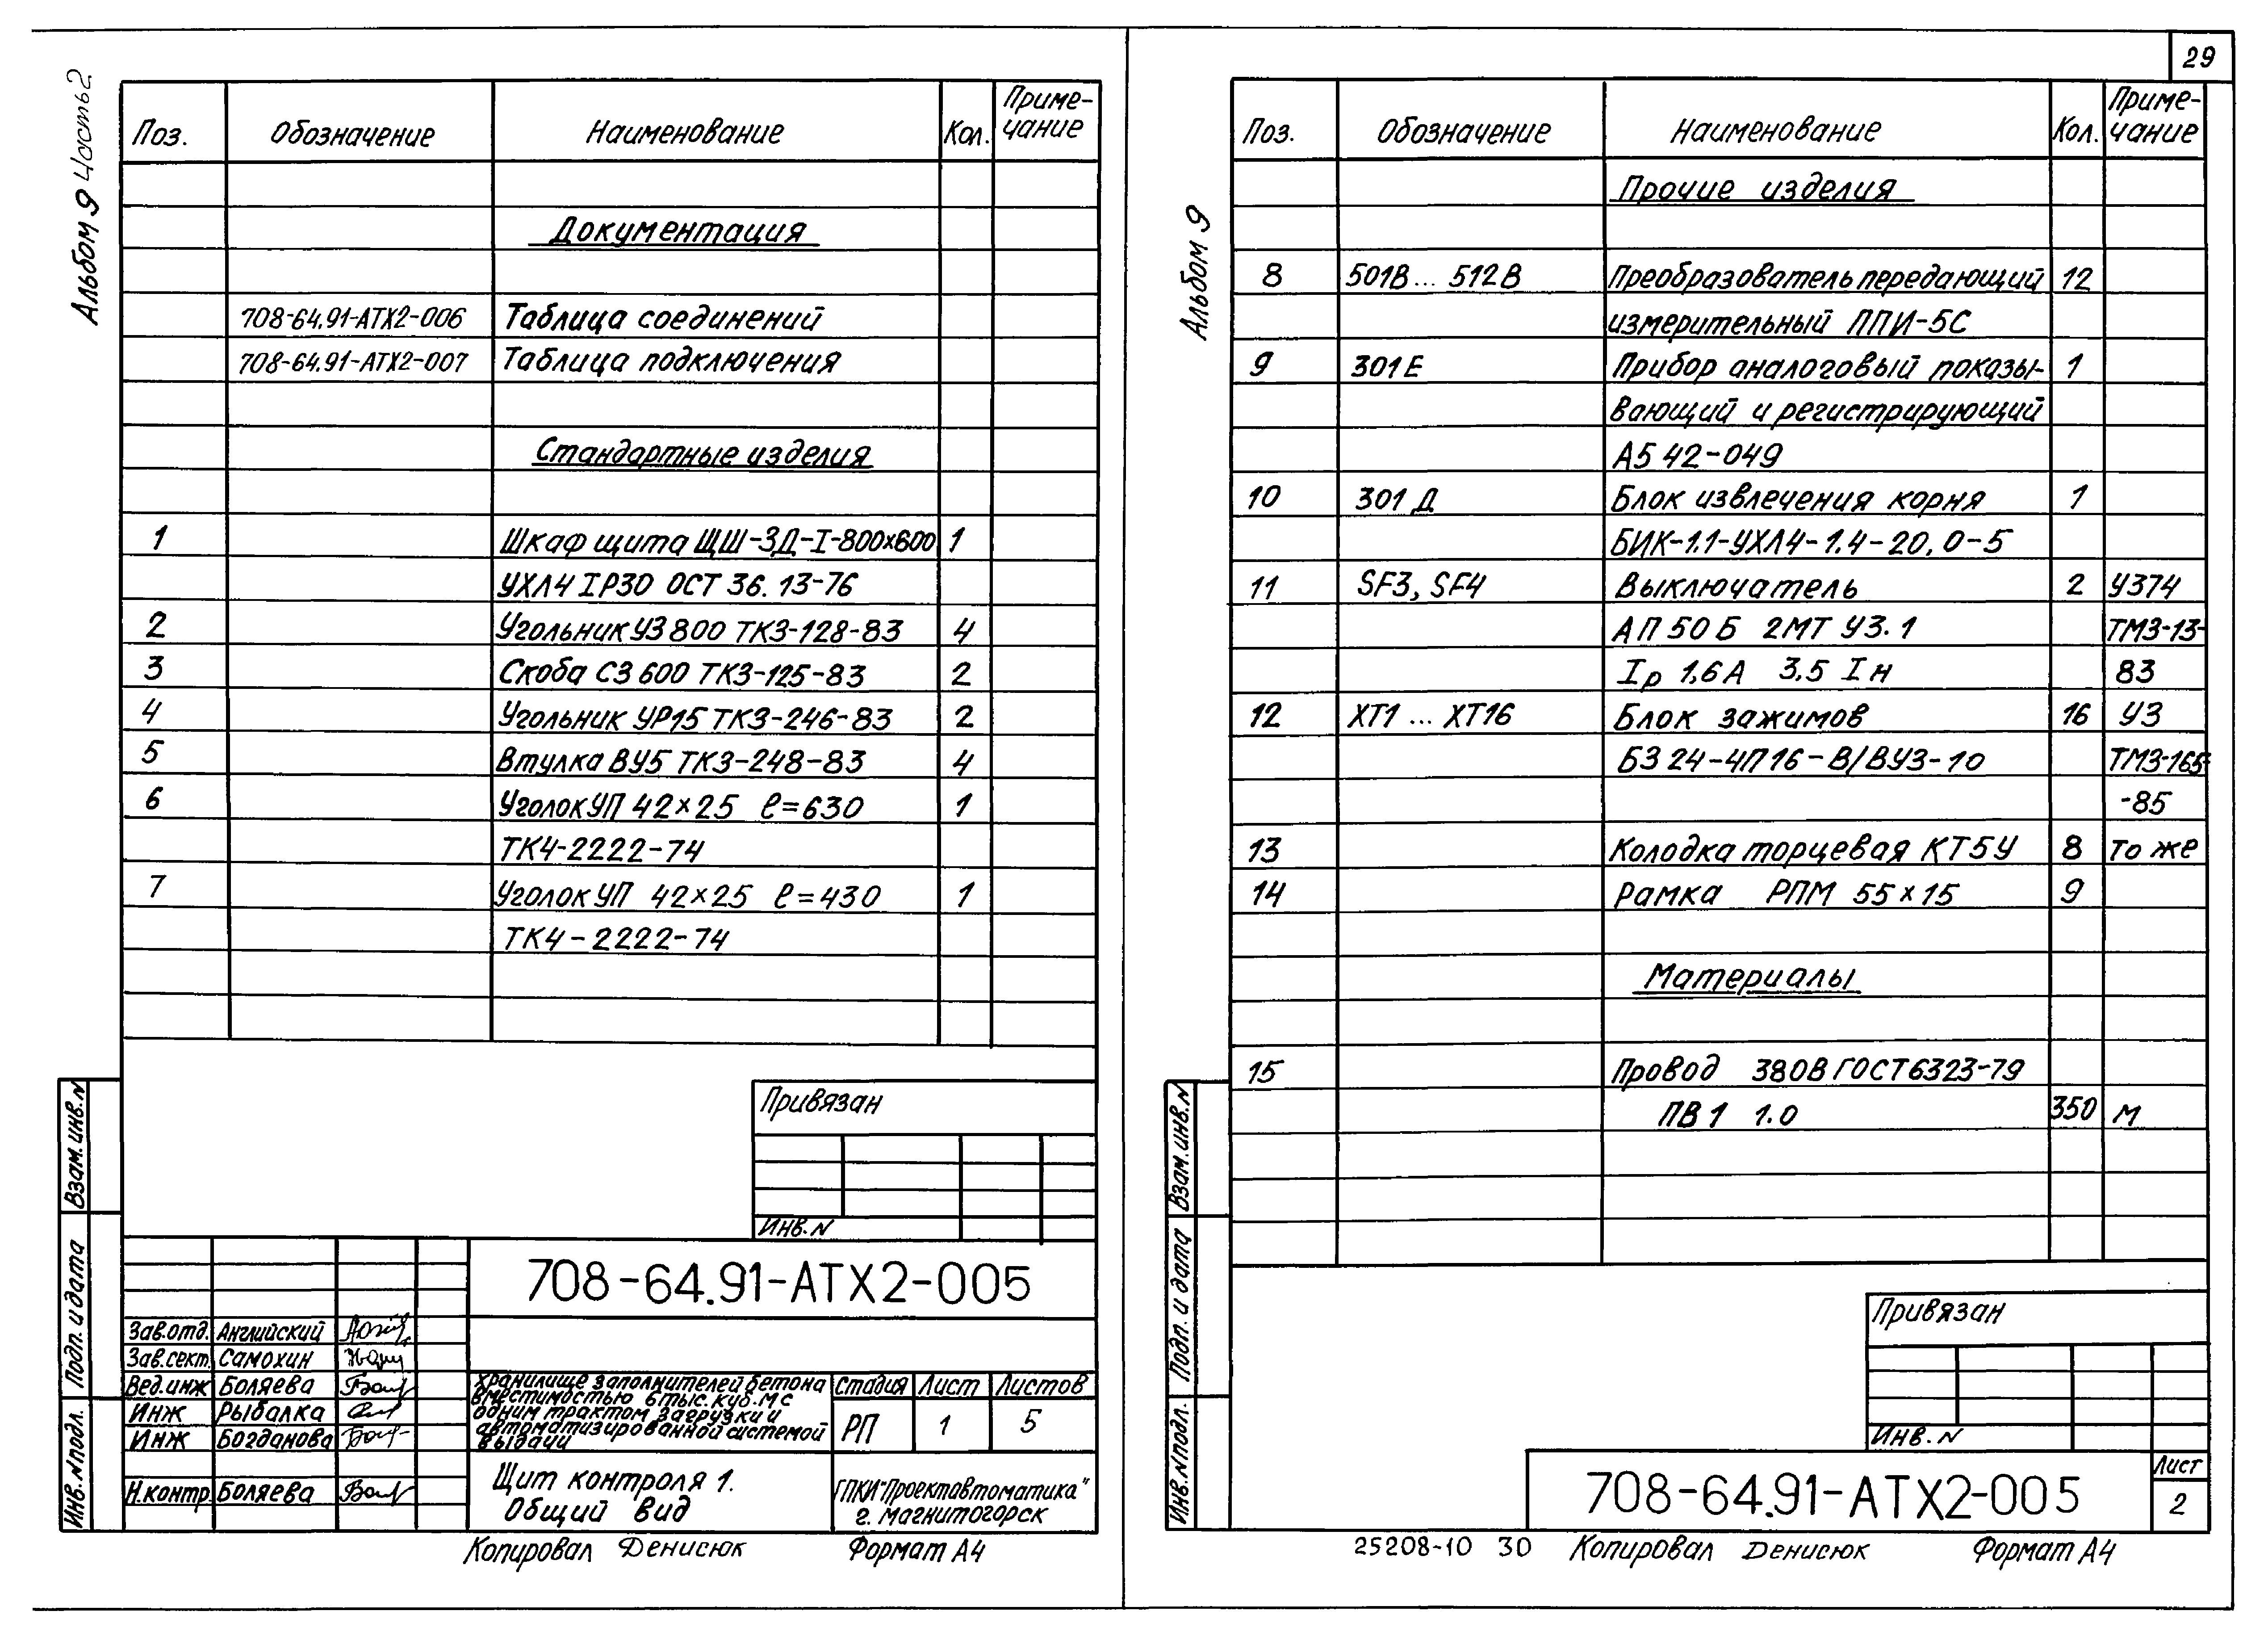 29
Альбом 9 Часть 2
Поз. Обозначение Наименование Кол. Приме-
чание
Документация
708-64.91-АТХ2-006 Таблица соединений
708-64.91-АТХ2-007 Таблица подключения
Стандартные изделия
1 Шкаф щита ЩШ-ЗД-I-800х600 1
УХЛ4 IP30 ОСТ 36.13-76
2 Угольник УЗ 800 ТКЗ-128-83 4
3 Скоба СЗ 600 ТКЗ-125-83 2
4 Угольник УР15 ТКЗ-246-83 2
5 Втулка ВУ5 ТКЗ-248-83 4
6 Уголок УП 42х25 ℓ=630 1
ТК4-2222-74
7 Уголок УП 42х25 ℓ=430 1
ТК4-2222-74
Привязан
Инв.N
708-64.91-АТХ2-005
Зав.отд. Английский
Зав.сект. Самохин
Вед.инж Боляева
Инж Рыбалка
Инж Богданова
Н.контр. Боляева
хранилище заполнителей бетона
вместимостью 6тыс.куб.м с
одним трактом загрузки и
автоматизированной системой
выдачи
Стадия Лист Листов
РП 1 5
Щит контроля 1.
Общий вид
ГПКИ "Проектавтоматика"
г. Магнитогорск
Взам.инв.N
Подп. и дата
Инв.N подл.
Копировал Денисюк Формат А4
Альбом 9
Поз. Обозначение Наименование Кол. Приме-
чание
Прочие изделия
8 501В... 512В Преобразователь передающий 12
измерительный ППИ-5С
9 301Е Прибор аналоговый показы- 1
вающий и регистрирующий
А5 42-049
10 301Д Блок извлечения корня 1
БИК-1.1-УХЛ4-1.4-20,0-5
11 SF3, SF4 Выключатель 2 У374
АП 50 Б 2МТ УЗ.1 ТМЗ-13-
Iр 1,6А 3,5 Iн 83
12 ХТ1 ... ХТ16 Блок зажимов 16 УЗ
БЗ 24-4П16-В/ВУЗ-10 ТМЗ-165-
-85
13 Колодка торцевая КТ5У 8 То же
14 Рамка РПМ 55х15 9
Материалы
15 Провод 380В ГОСТ6323-79
ПВ1 1.0 350 м
Привязан
Инв.N
708-64.91-АТХ2-005
Лист
2
Взам.инв.N
Подп. и дата
Инв.N подл.
25208-10 30 Копировал Денисюк Формат А4